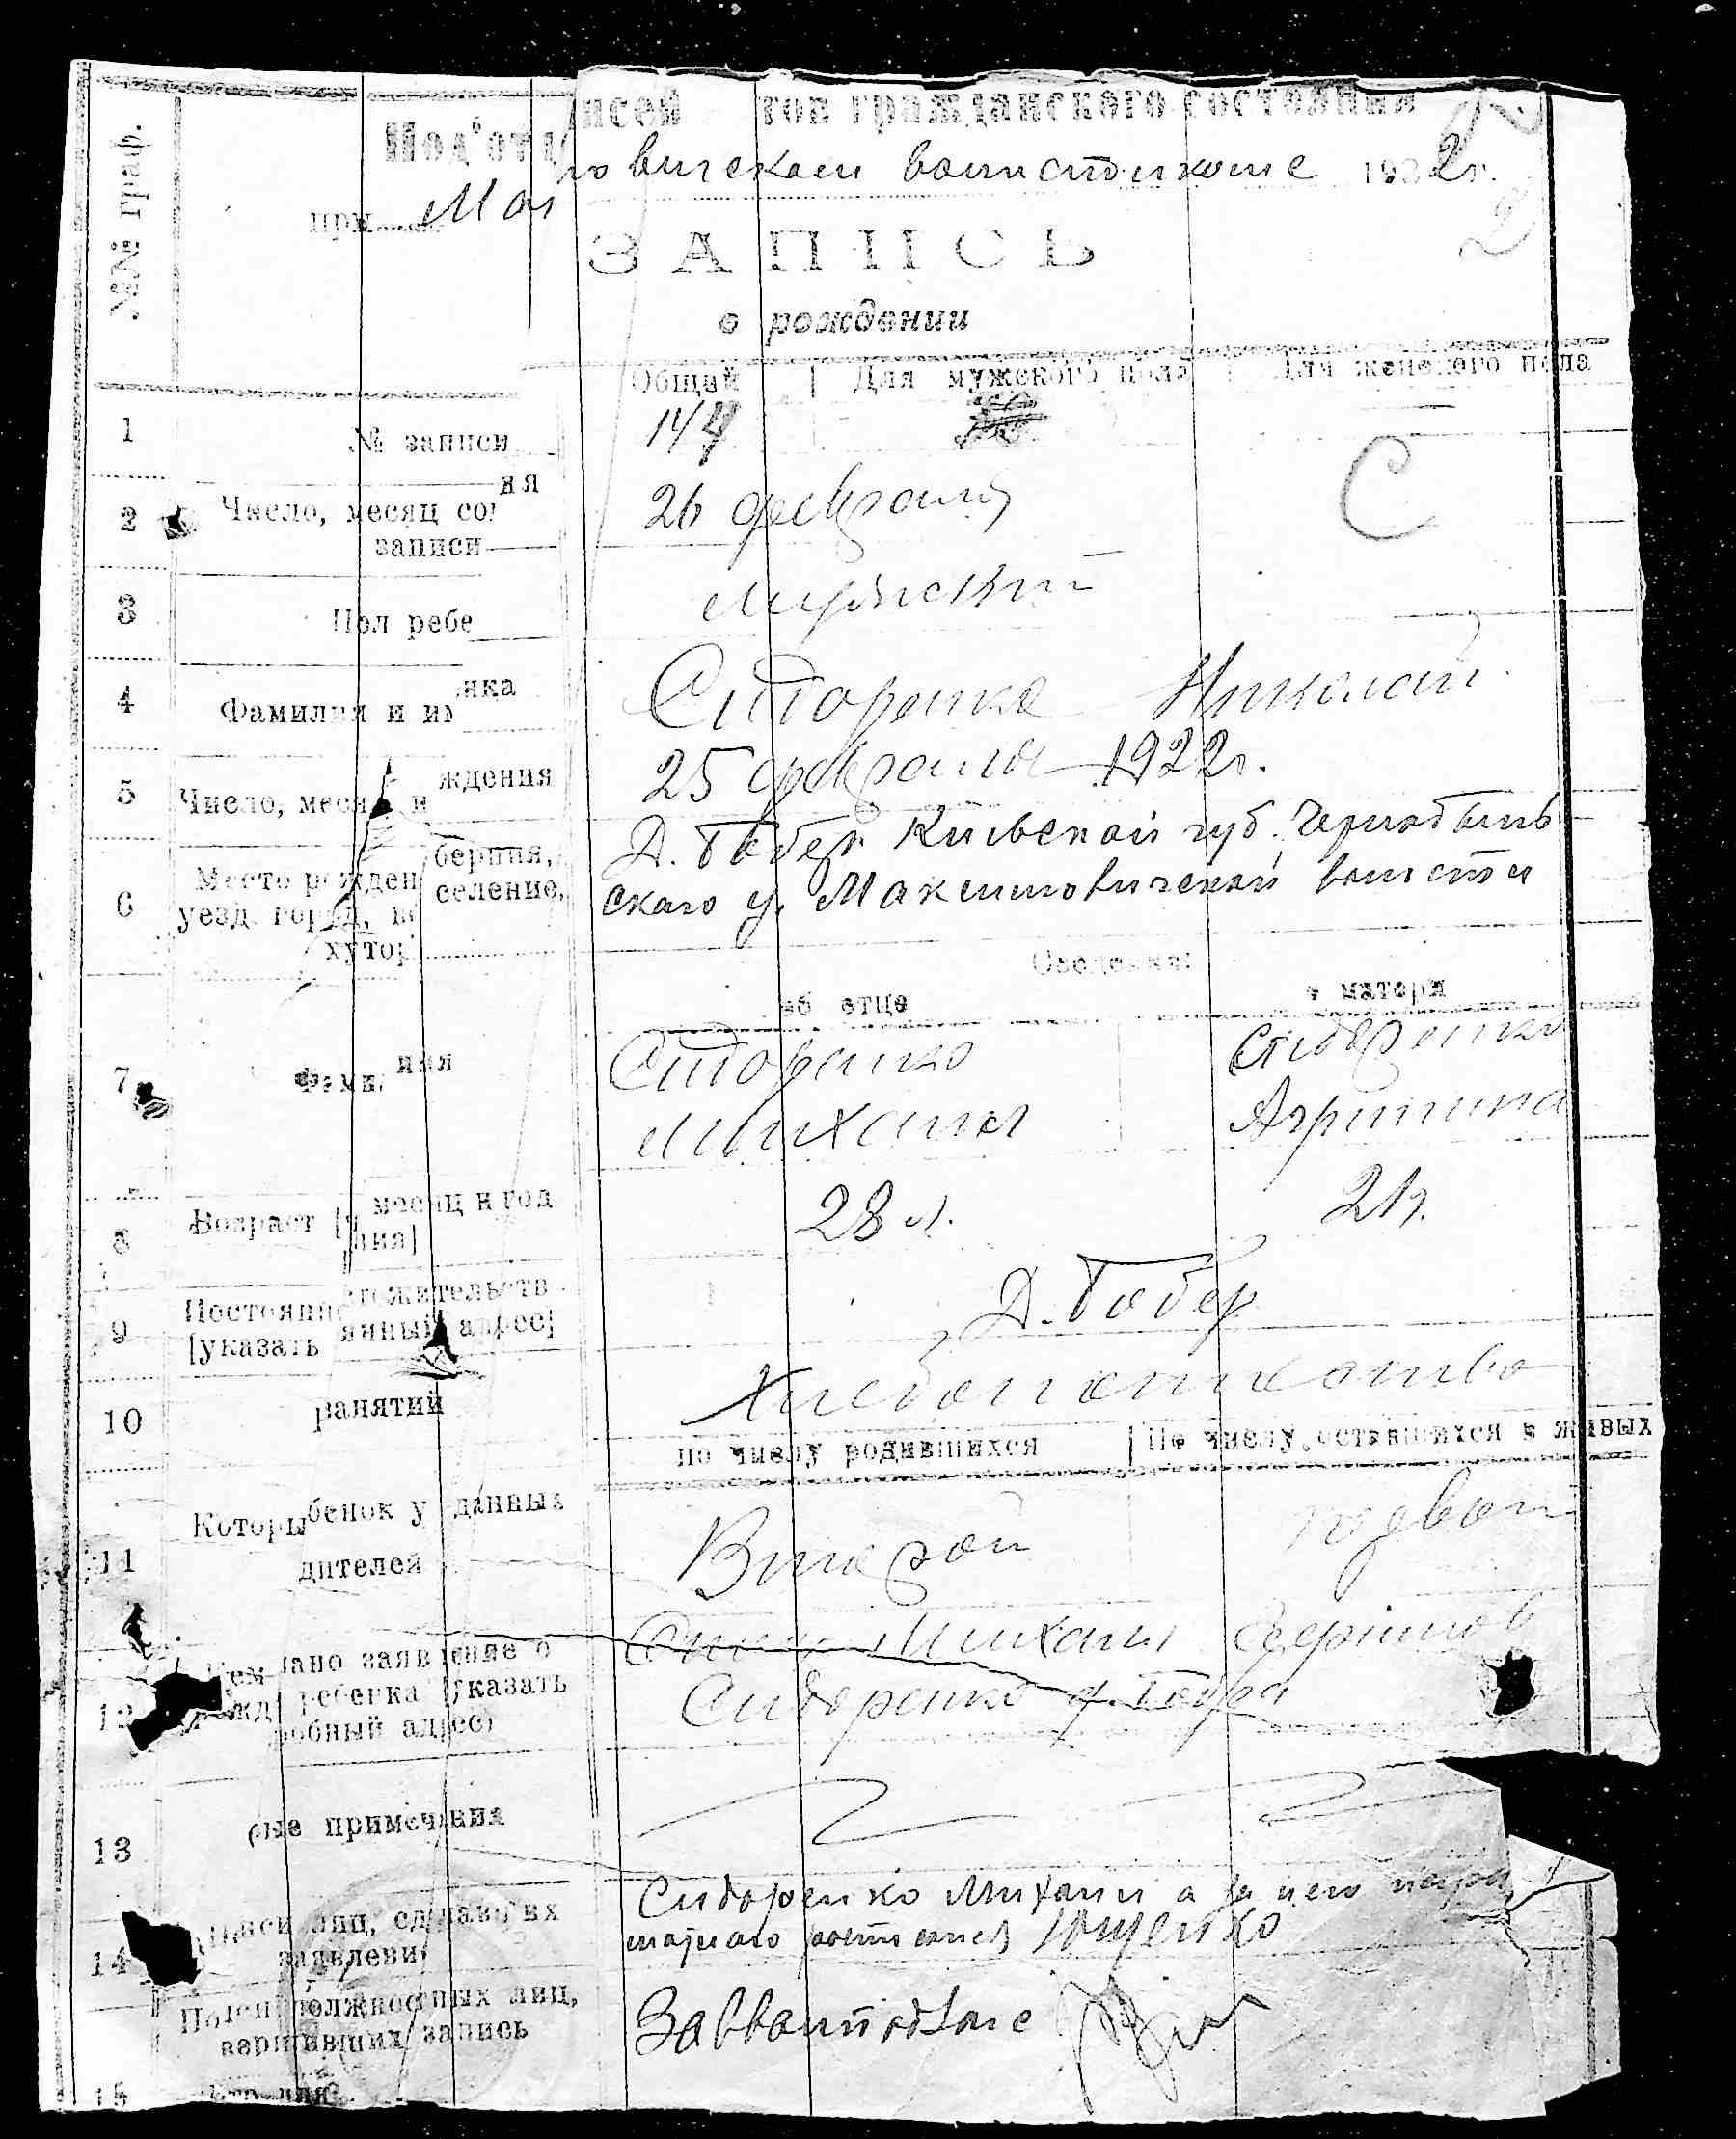 №№ граф.
Под'отд исей тов гражданского состояния
при Мак овическом волисполкоме 1922 г.
ЗАПИСЬ
о рождении
Общий Для мужского пола Для женского пола
1 № записи 144
С
2 Число, месяц со ия
записи
26 февраля
3 Пол ребе мужской
4 Фамилия и им нка Сидоренко Николай
5 Число, меся и ждения 25 февраля 1922 г.
6 Место рожден берния,
уезд, город, во селение,
хутор
Д. Бобер Киевской губ. Чернобыль
скаго у. Максимовической волости
Сведения:
об отце о матери
7 Фами лия Сидоренко Сидоренко
Михаил Агрипина
8 Возраст месяц и год
ния]
28 л. 21 г.
9 Постоянно тожительств
[указать янный адрес]
Д. Бобер
10 занятий Хлебопашество
по числу родившихся По числу оставшихся в живых
11 Которы бенок у данных
дителей
Второй первый
12 Кем дано заявление о
рожд ребенка указать
робный адрес)
Отец Михаил
Сидоренко д. Бобра
13 ые примечания
14 писи лиц, сдлавших
заявлени
Сидоренко Михаил а за него негра
мотнаго росписался Ющенко
По иси должностных лиц,
вершивших запись
Завволподотделе
15